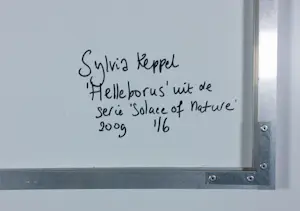 Sylvia Keppel
'Helleborus' uit de
serie 'Solace of Nature'
2009 1/6